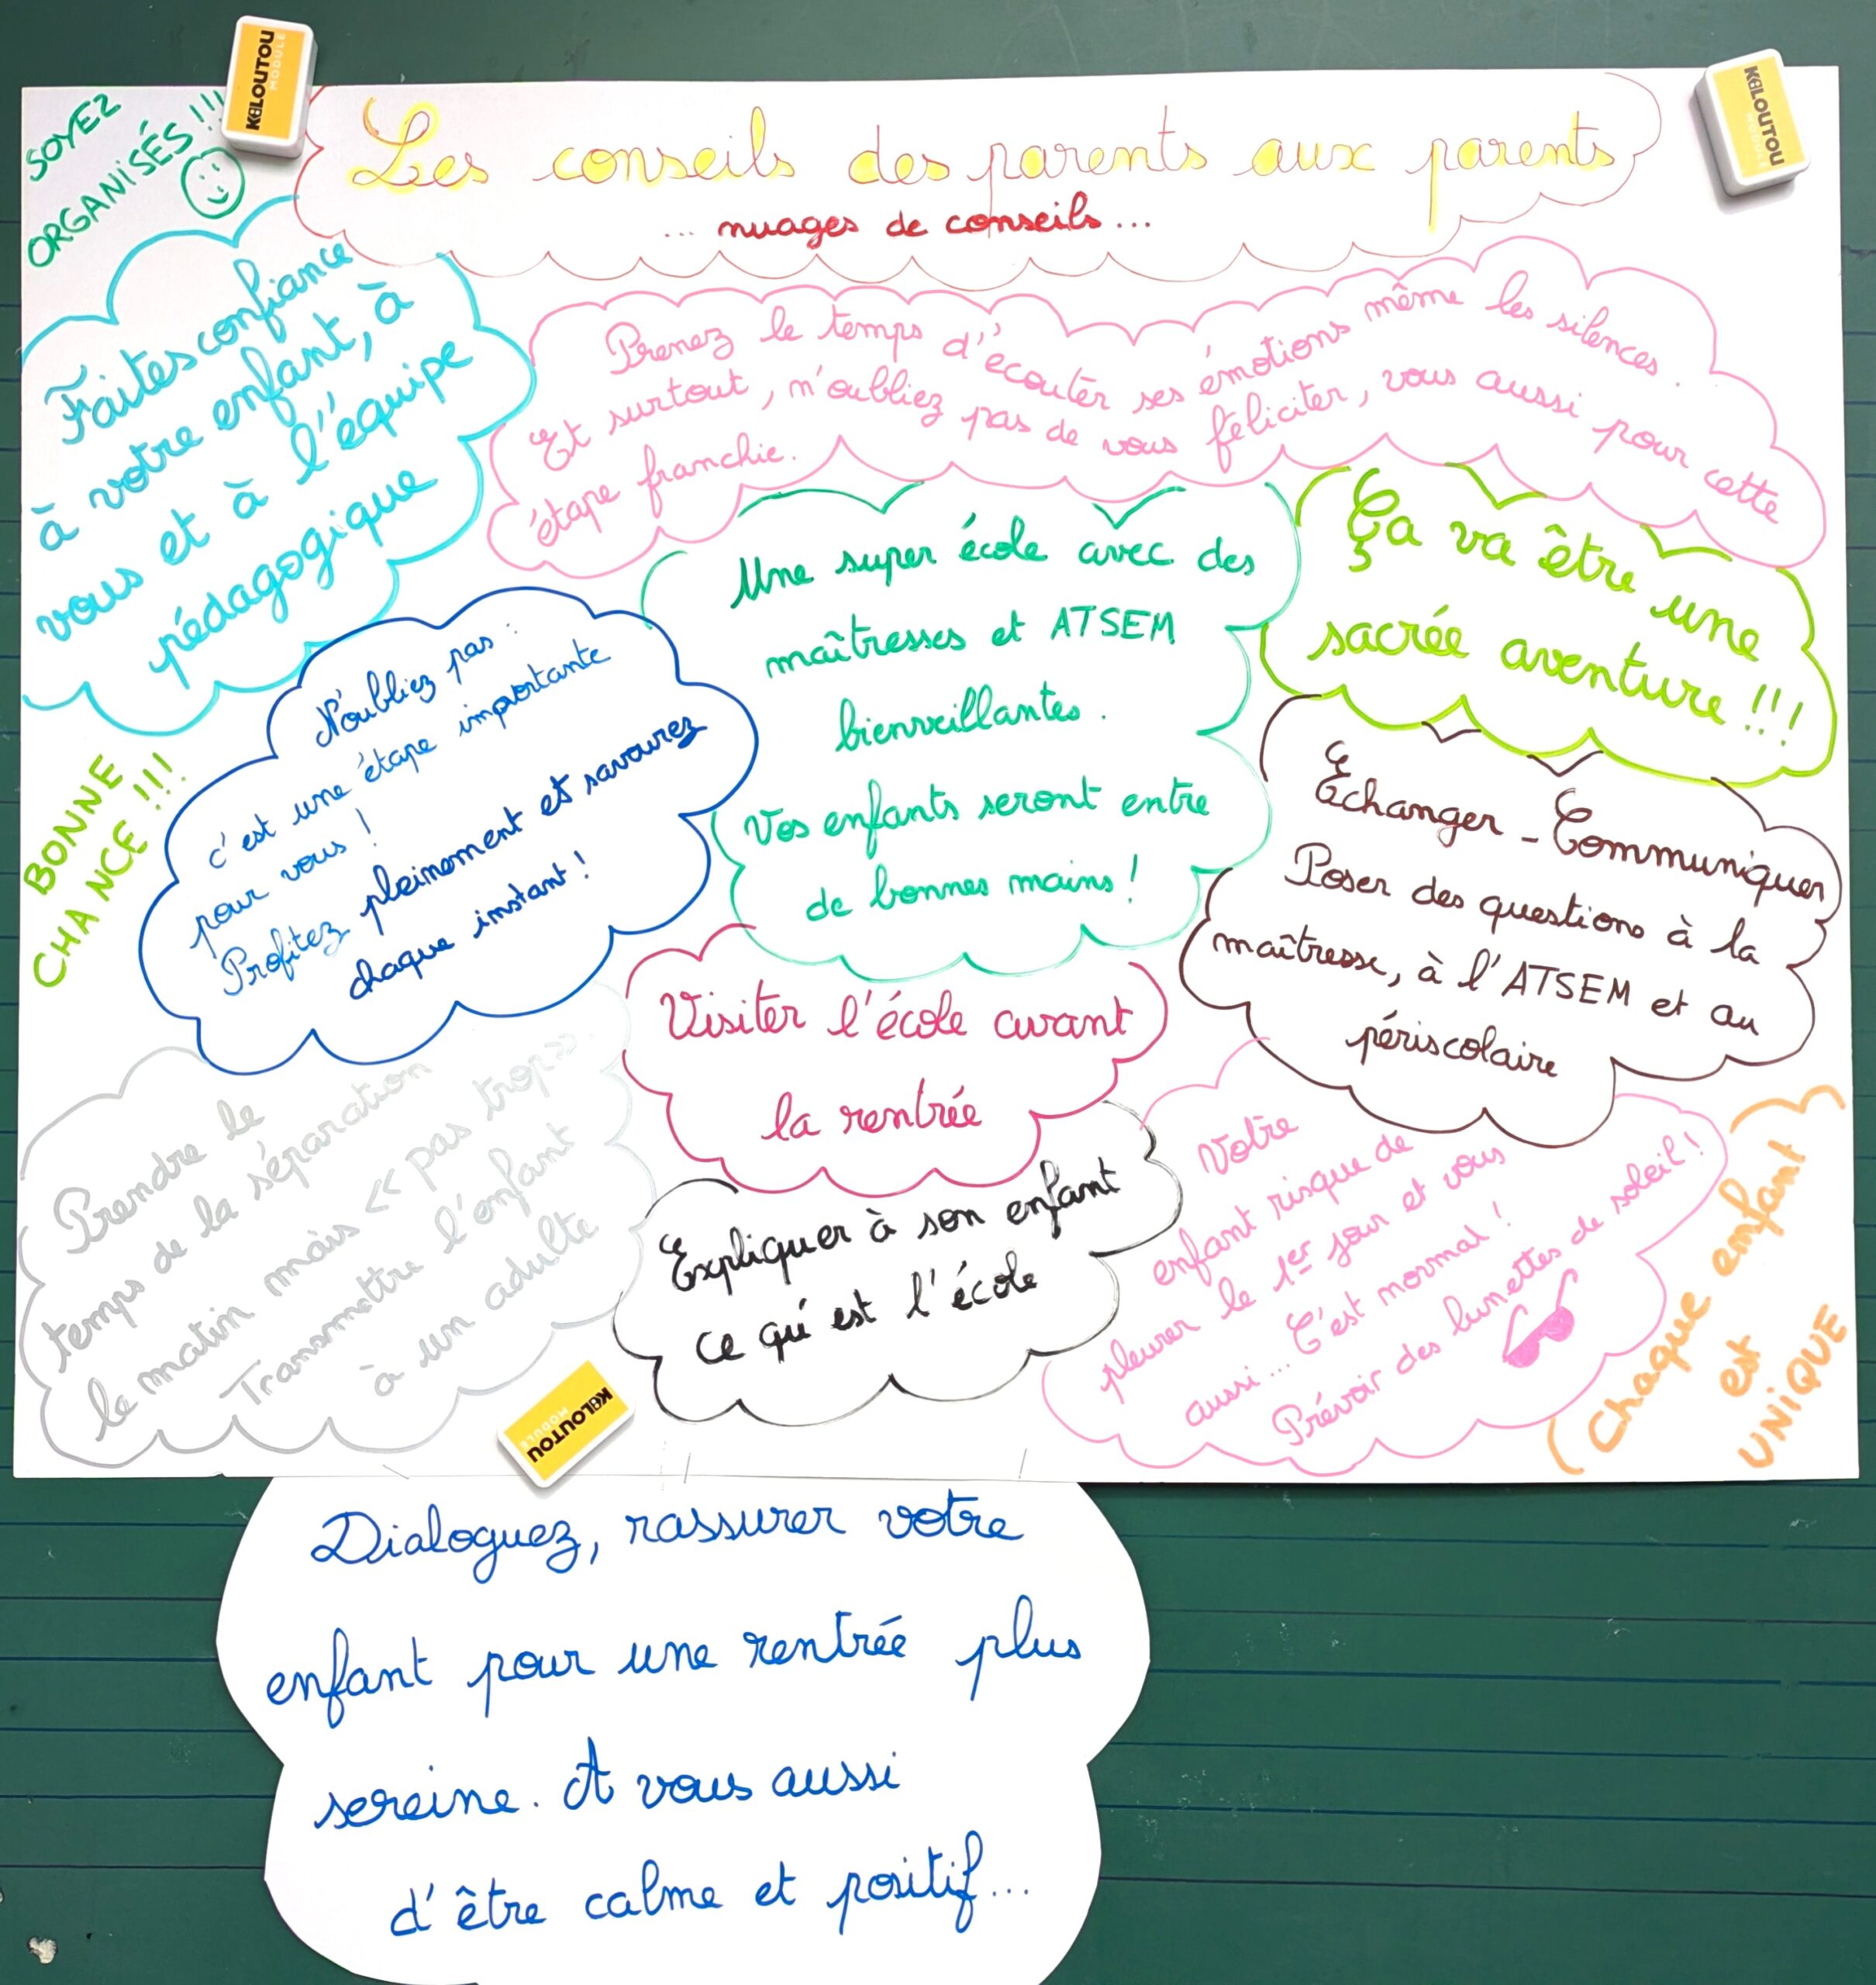 SOYEZ
ORGANISÉS !!!
KiLOUTOU
MODULE
KiLOUTOU
MODULE
Les conseils des parents aux parents
... nuages de conseils ...
Faites confiance
à votre enfant, à
vous et à l'équipe
pédagogique
Prenez le temps d'écouter ses émotions même les silences.
Et surtout, n'oubliez pas de vous féliciter, vous aussi pour cette
étape franchie.
Une super école avec des
maîtresses et ATSEM
bienveillantes.
Vos enfants seront entre
de bonnes mains !
Ça va être une
sacrée aventure !!!
N'oubliez pas :
c'est une étape importante
pour vous !
Profitez pleinement et savourez
chaque instant !
BONNE
CHANCE !!!
Echanger - Communiquer
Poser des questions à la
maîtresse, à l'ATSEM et au
périscolaire
Visiter l'école avant
la rentrée
Prendre le
temps de la séparation
le matin mais << pas trop>>.
Transmettre l'enfant
à un adulte
Expliquer à son enfant
ce qui est l'école
Votre
enfant risque de
pleurer le 1er jour et vous
aussi... C'est normal !
Prévoir des lunettes de soleil !
Chaque enfant
est
UNIQUE
KiLOUTOU
MODULE
Dialoguez, rassurer votre
enfant pour une rentrée plus
sereine. A vous aussi
d'être calme et positif...